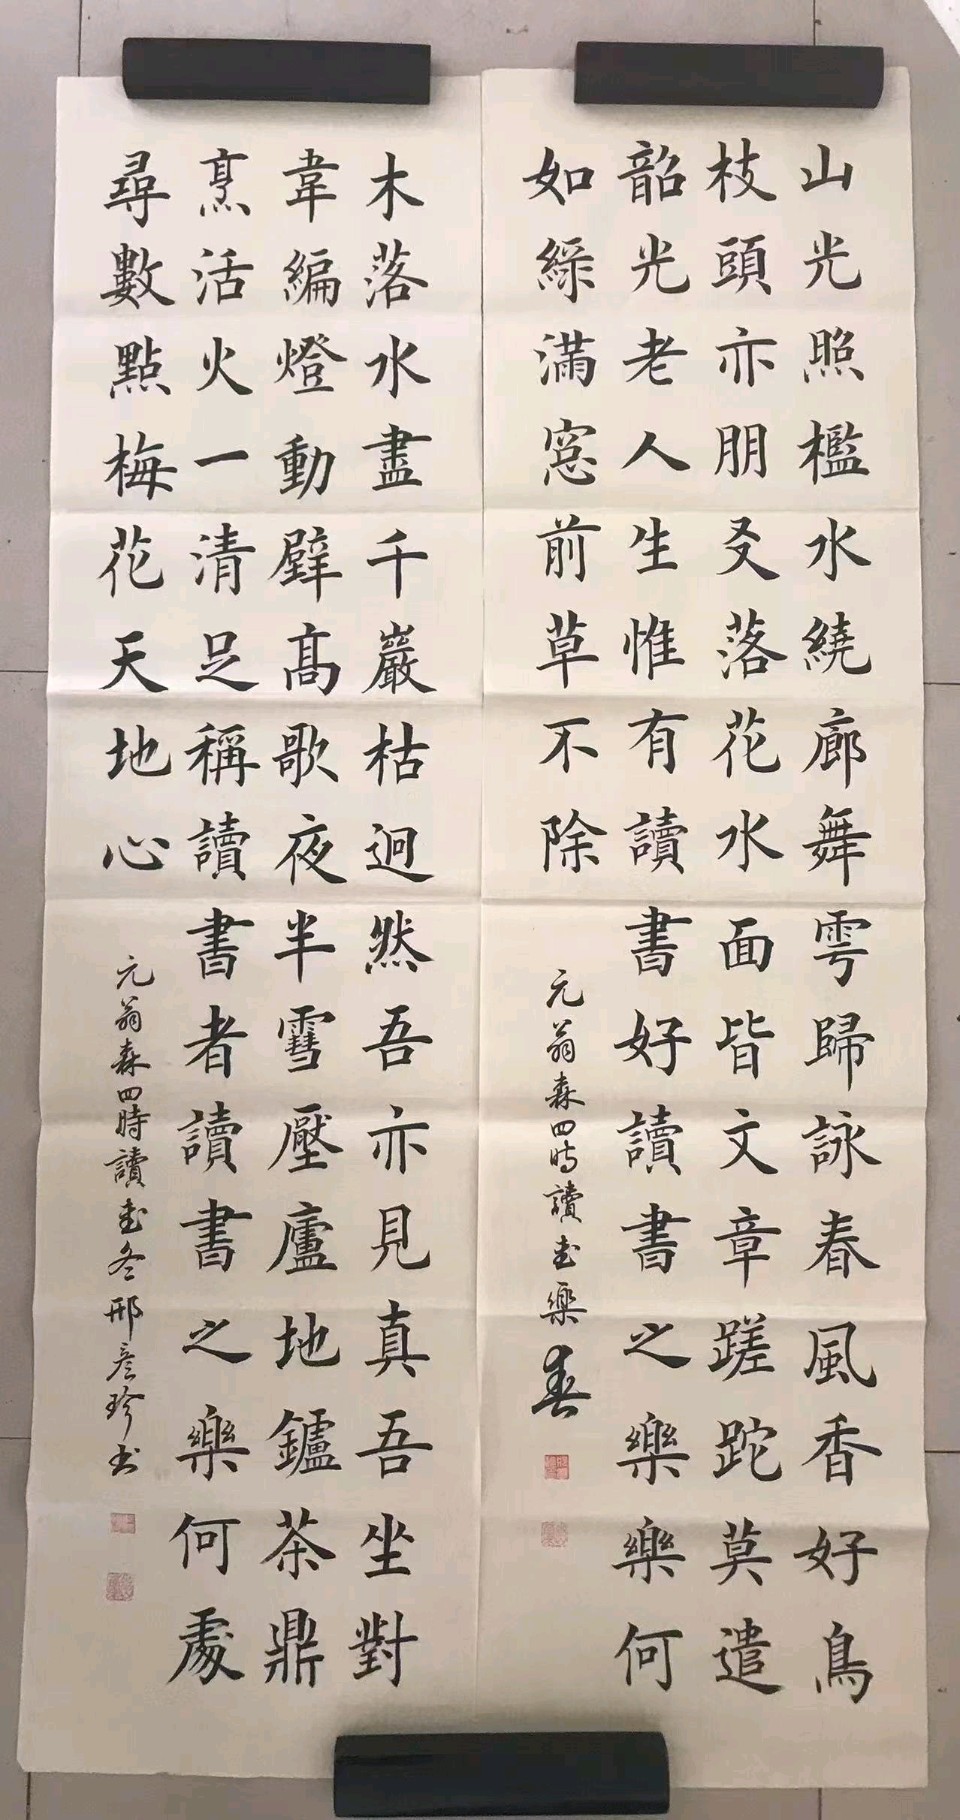 山光照檻水繞廊舞雩歸詠春風香好鳥
枝頭亦朋友落花水面皆文章蹉跎莫遣
韶光老人生惟有讀書好讀書之樂樂何
如綠滿窓前草不除
元翁森四時讀書樂春
木落水盡千巖枯迥然吾亦見真吾坐對
韋編燈動壁高歌夜半雪壓廬地鑪茶鼎
烹活火一清足稱讀書者讀書之樂何處
尋數點梅花天地心
元翁森四時讀書冬邢彦珍书